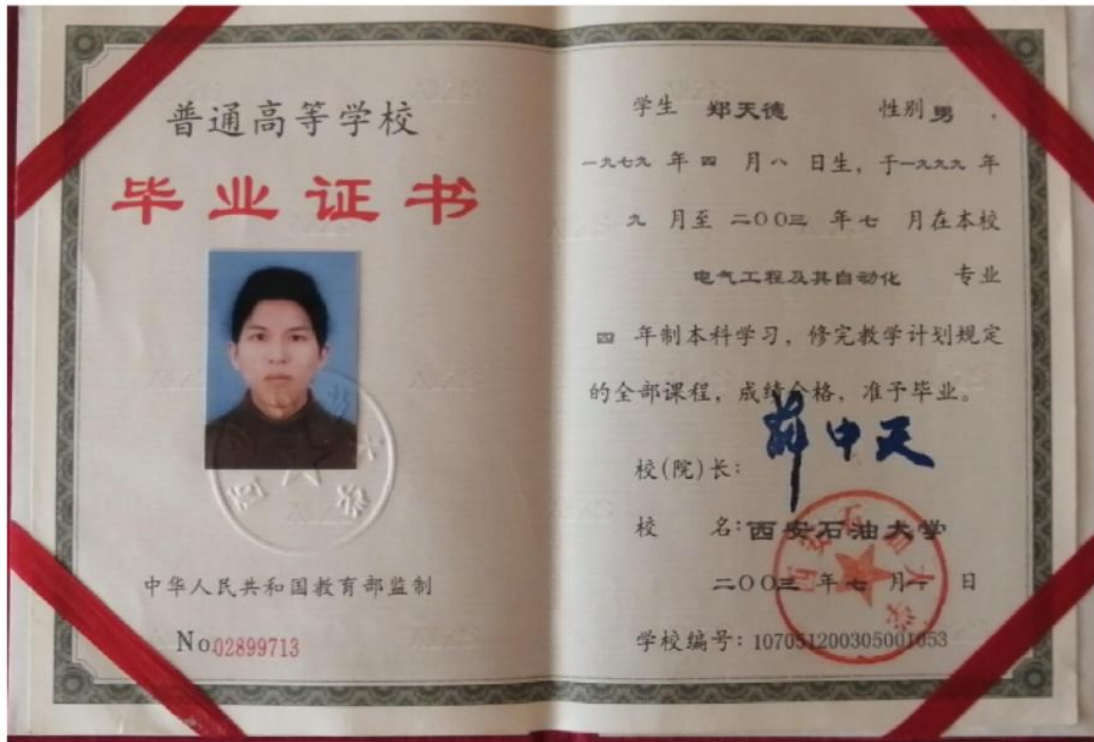 普通高等学校
毕业证书
中华人民共和国教育部监制
No.02899713
学生 郑天德 性别 男，
一九七九 年 四 月 八 日生，于一九九九 年
九 月至 二〇〇三 年 七 月在本校
电气工程及其自动化 专业
四 年制本科学习，修完教学计划规定
的全部课程，成绩合格，准予毕业。
校(院)长：薛中天
校 名：西安石油大学
二〇〇三 年 七 月 一 日
学校编号：107051200305001053